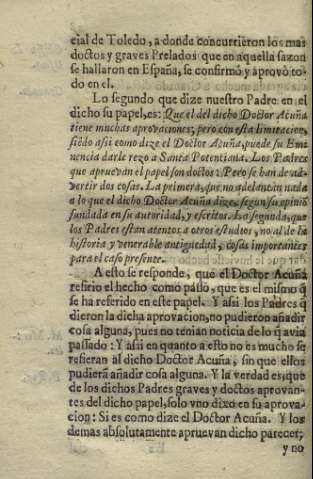 cial de Toledo, a donde concurrieron los mas
doctos y graves Prelados que en aquella sazon
se hallaron en España, se confirmò y aprovò to-
do en el.
Lo segundo que dize nuestro Padre en el
dicho su papel, es: Que el del dicho Doctor Acuña
tiene muchas aprovaciones; pero con esta limitacion,
siẽdo assi como dize el Doctor Acuña, puede su Emi
nencia darle rezo a Santa Potenciana. Los Padres
que apruevan el papel son doctos: Pero se han de ad-
vertir dos cosas. La primera, que no adelantan nada
a lo que el dicho Doctor Acuña dize, segun su opiniõ
fundada en su autoridad, y escritos. La segunda, que
los Padres estan atentos a otros estudios, no al de la
historia y venerable antiguedad, cosas importantes
para el caso presente.
A esto se responde, que el Doctor Acuña
refirio el hecho como passò, que es el mismo q̃
se ha referido en este papel. Y assi los Padres q̃
dieron la dicha aprovacion, no pudieron añadir
cosa alguna, pues no tenian noticia de lo q̃ avia
passado: Y assi en quanto a esto no es mucho se
refieran al dicho Doctor Acuña, sin que ellos
pudierã añadir cosa alguna. Y la verdad es, que
de los dichos Padres graves y doctos aprovan-
tes del dicho papel, solo vno dixo en su aprova-
cion: Si es como dize el Doctor Acuña. Y los
demas absolutamente apruevan dicho parecer;
y no